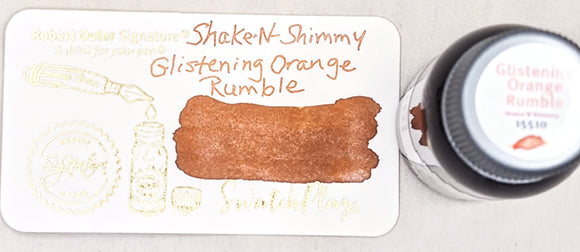 Robert Oster Signature®
A drink for your pen®
Shake-N-Shimmy
Glistening Orange
Rumble
Glistening
Orange
Rumble
Shake'N'Shimmy